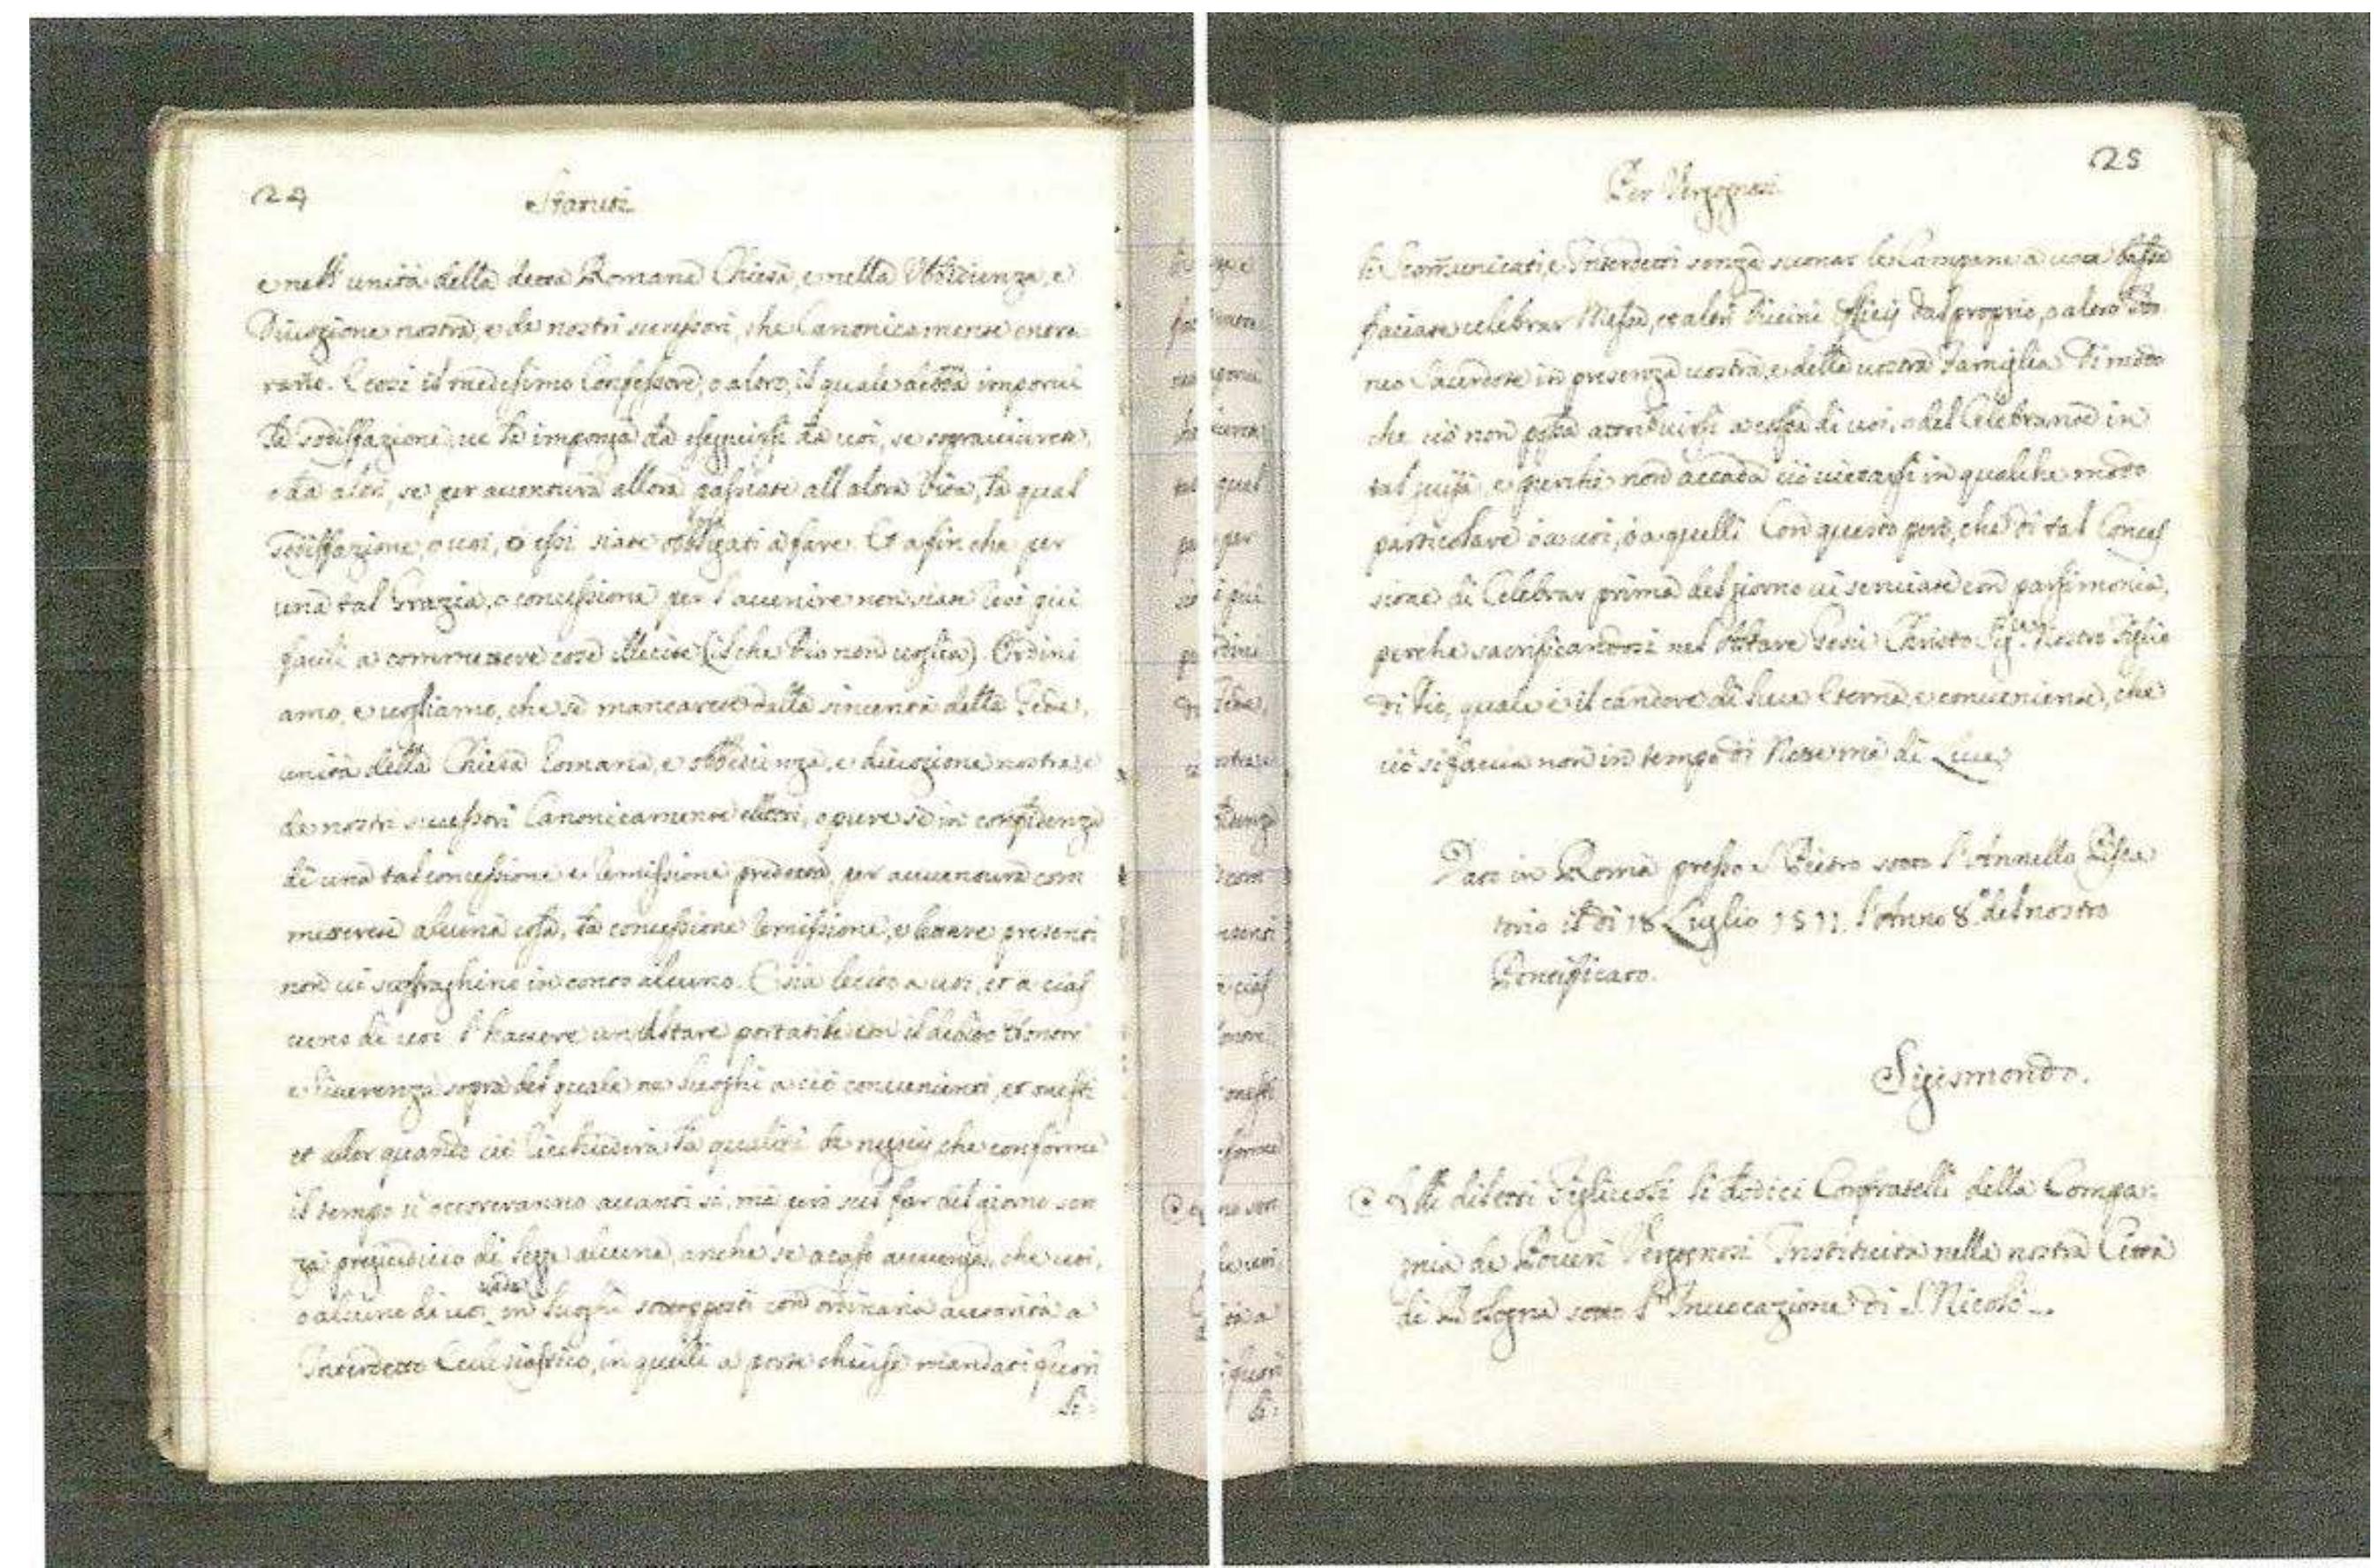 24
Statuti
e nell unità della detta Romana Chiesa, e nella Obbidienza, e
Divozione nostra, e de nostri successori, che Canonicamente entra
ranno. E così il medesimo Confessore, o altro, il quale debba imporvi
la sodisfazione, ve la imponga da eseguirsi da voi, se sopraviverete,
o da altri, se per avventura allora passiate all altra Vita, la qual
sodisfazione, o voi, ò essi siate obbligati à fare. Et afin che per
una tal Grazia, o concessione per l'avvenire non siate resi più
facili a commettere cose illecite (il che Dio non voglia). Ordini
amo, e vogliamo, che se mancarete dalla sincerità della Fede,
unità della Chiesa Romana, e obbidienza, e divozione nostra, e
de nostri successori Canonicamente eletti, o pure se in confidenza
di una tal concessione e Remissione predetta, per avventura com
metterete alcuna cosa, la concessione Remissione, e lettere presenti
non vi suffraghino in conto alcuno. E sia lecito a voi, et a cias
cuno di voi l'havere un Altare portatile con il debito honore
e Riverenza sopra del quale ne luoghi a ciò convenienti, et onesti
et allor quando ciò Richiederà la qualità de negozij che conforme
il tempo vi occorreranno avanti sì, ma però sul far del giorno sen
za pregiudicio di legge alcuna, anche se a caso avvenga, che voi,
o alcuno di voi vada in luoghi sottoposti con ordinaria autorità a
Interdetto Ecclesiastico, in quelli a porte chiuse mandati fuori
li:
25
Per Vergognosi
li Scomunicati, e Interdetti senza suonar le Campane a voce bassa
facciate celebrar Messa, et altri Divini Officij dal proprio, o altro Ido
neo Sacerdote in presenza vostra, e della vostra Famiglia di modo
che ciò non possa attribuirsi a colpa di voi, o del Celebrante in
tal guisa, e purche non accada ciò vietarsi in qualche modo
particolare ò a voi, ò a quelli. Con questo però, che di tal Conces
sione di Celebrar prima del giorno vi serviate con parsimonia,
perche sacrificandosi nel Altare Gesù Christo Sig.re Nostro Figlio
di Dio, quale è il candore di luce Eterna, e conveniente, che
ciò si faccia non in tempo di Notte ma di Luce
Dato in Roma presso S. Pietro sotto l'Annello Pisca
torio il dì 18 Luglio 1511. l'Anno 8.° del nostro
Pontificato.
Sigismondo.
Alli diletti Figliuoli li dodici Confratelli della Compa:
gnia de Poveri Vergognosi Instituita nella nostra Città
di Bologna sotto l'Invocazione di S. Nicolò